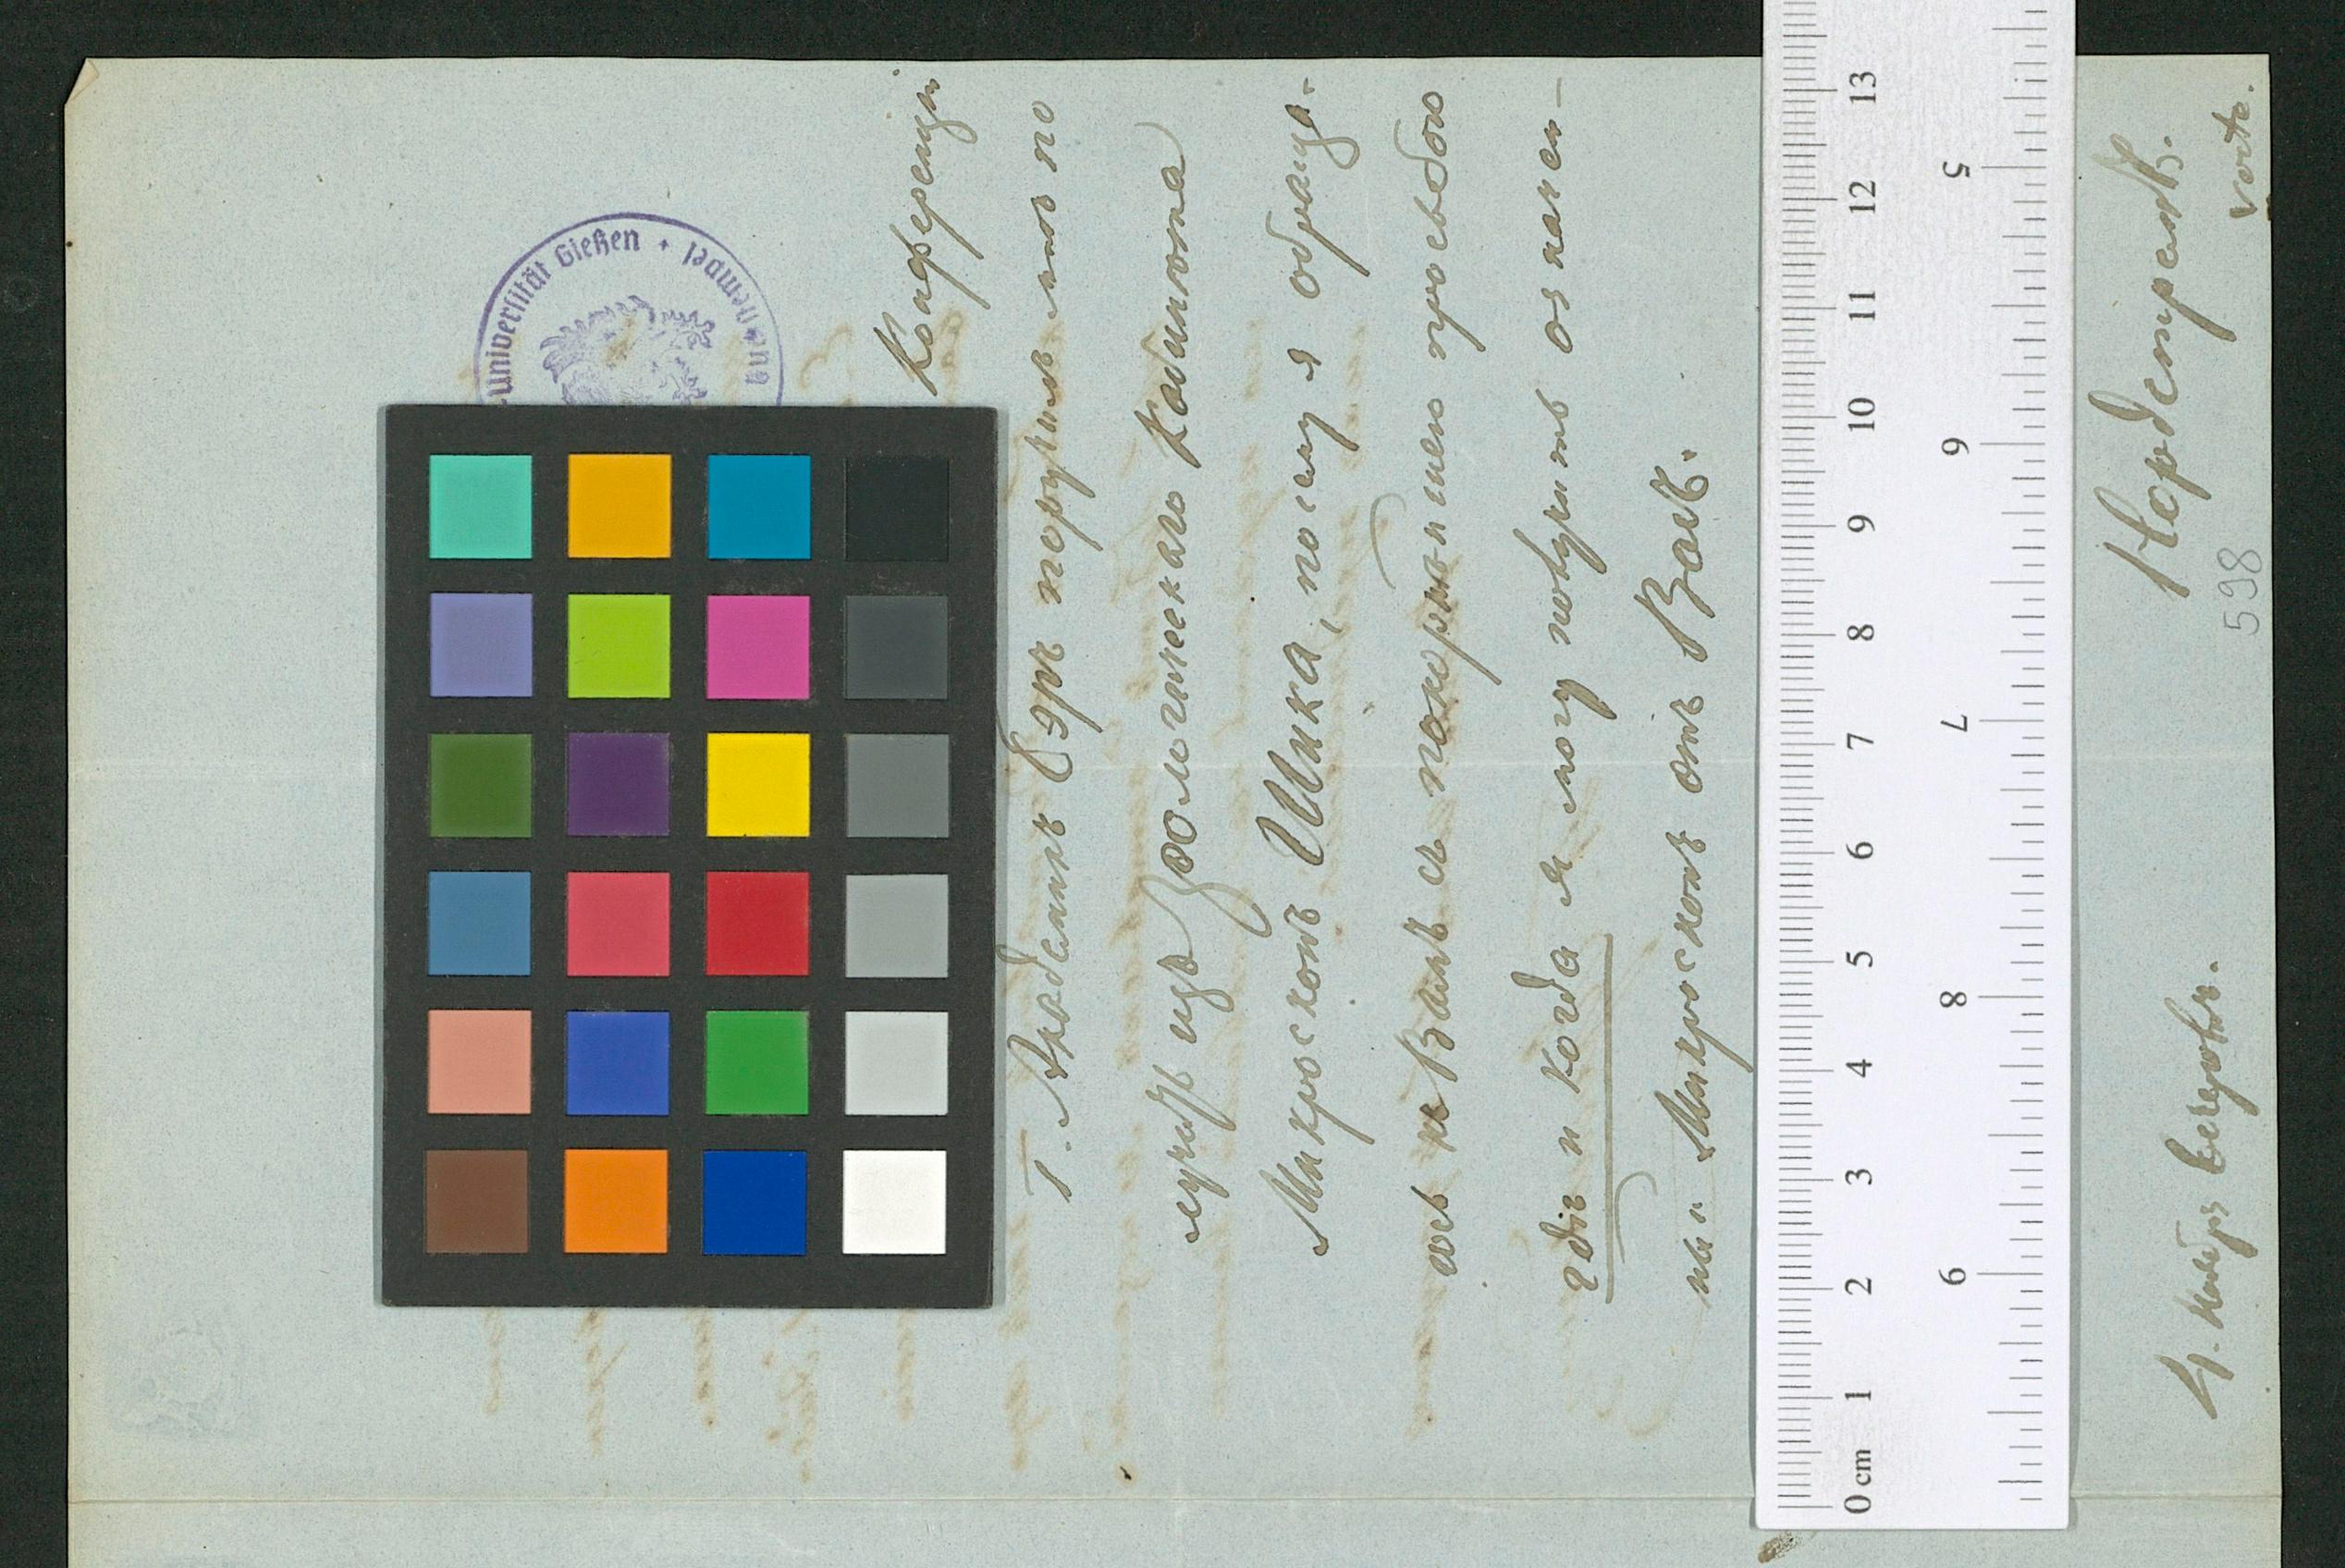 Universität Gießen
Конференци
Г. Академикъ Бэръ поручилъ мнѣ по
лучить изъ Зоологическаго Кабинета
Микроскопъ Шика, посему я обраща-
юсь къ Вамъ съ покорнѣйшею просьбою
гдѣ и когда я могу получить означен-
ный Микроскопъ отъ Васъ.
4. Ноября
598
verte.
0 cm 1 2 3 4 5 6 7 8 9 10 11 12 13
5 6 7 8 9